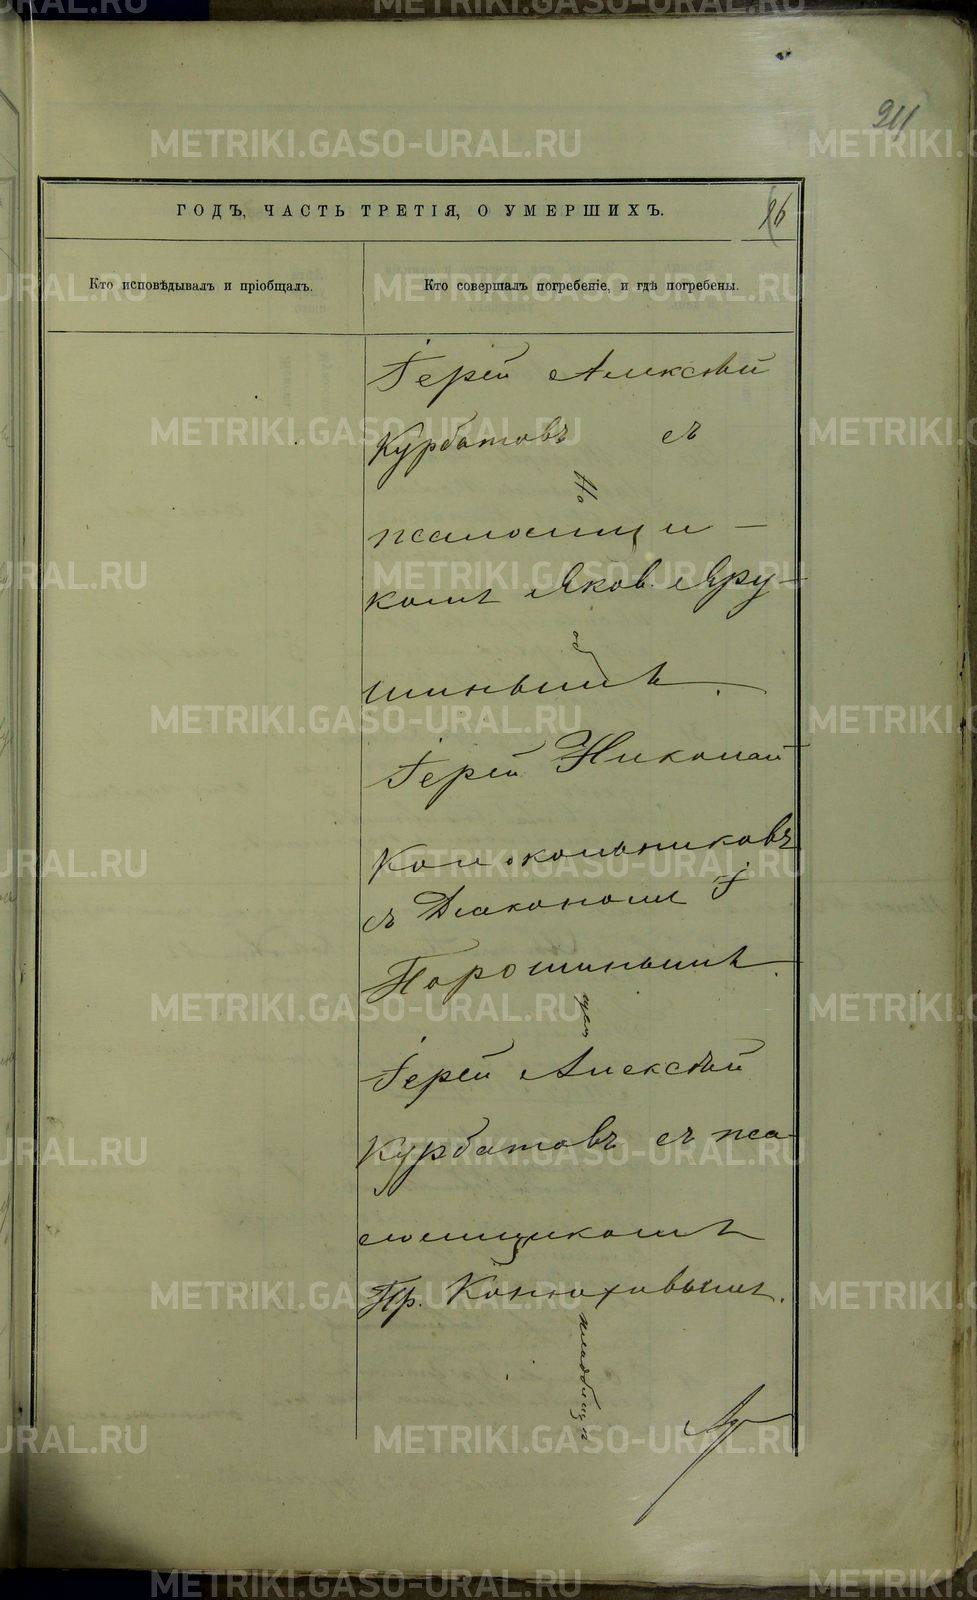 911
ГОДЪ, ЧАСТЬ ТРЕТІЯ, О УМЕРШИХЪ.
16
Кто исповѣдывалъ и пріобщалъ.
Кто совершалъ погребеніе, и гдѣ погребены.
Іерей Алексѣй
Курбатовъ съ
псаломщи-
комъ Яков. Яру-
шинымъ.
Іерей Николай
Колокольниковъ
съ Діакономъ І
Порошинымъ.
Іерей Алексѣй
Курбатовъ съ пса-
ломщикомъ
Пр. Конюховымъ.
METRIKI.GASO-URAL.RU